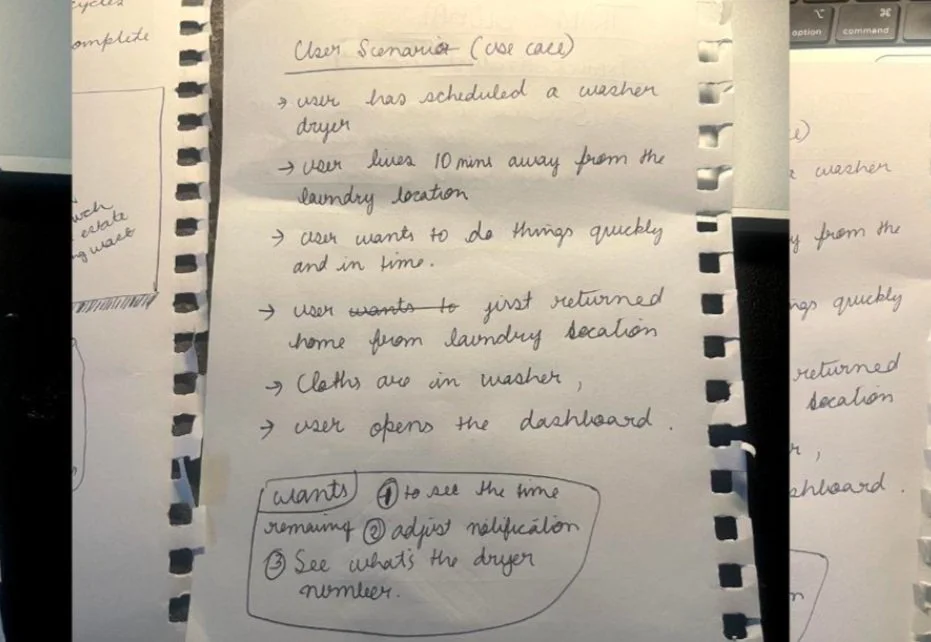 cycles
omplete
wch
estate
ng wast
User Scenario (use case)
→ user has scheduled a washer
dryer
→ user lives 10 mins away from the
laundry location
→ user wants to do things quickly
and in time.
→ user wants to jist returned
home from laundry location
→ Cloths are in washer,
→ user opens the dashboard.
wants ① to see the time
remaing ② adjust notification
③ See what's the dryer
number.
option
⌘
command
e)
washer
y from the
ngs quickly
returned
location
r,
shboard.
n